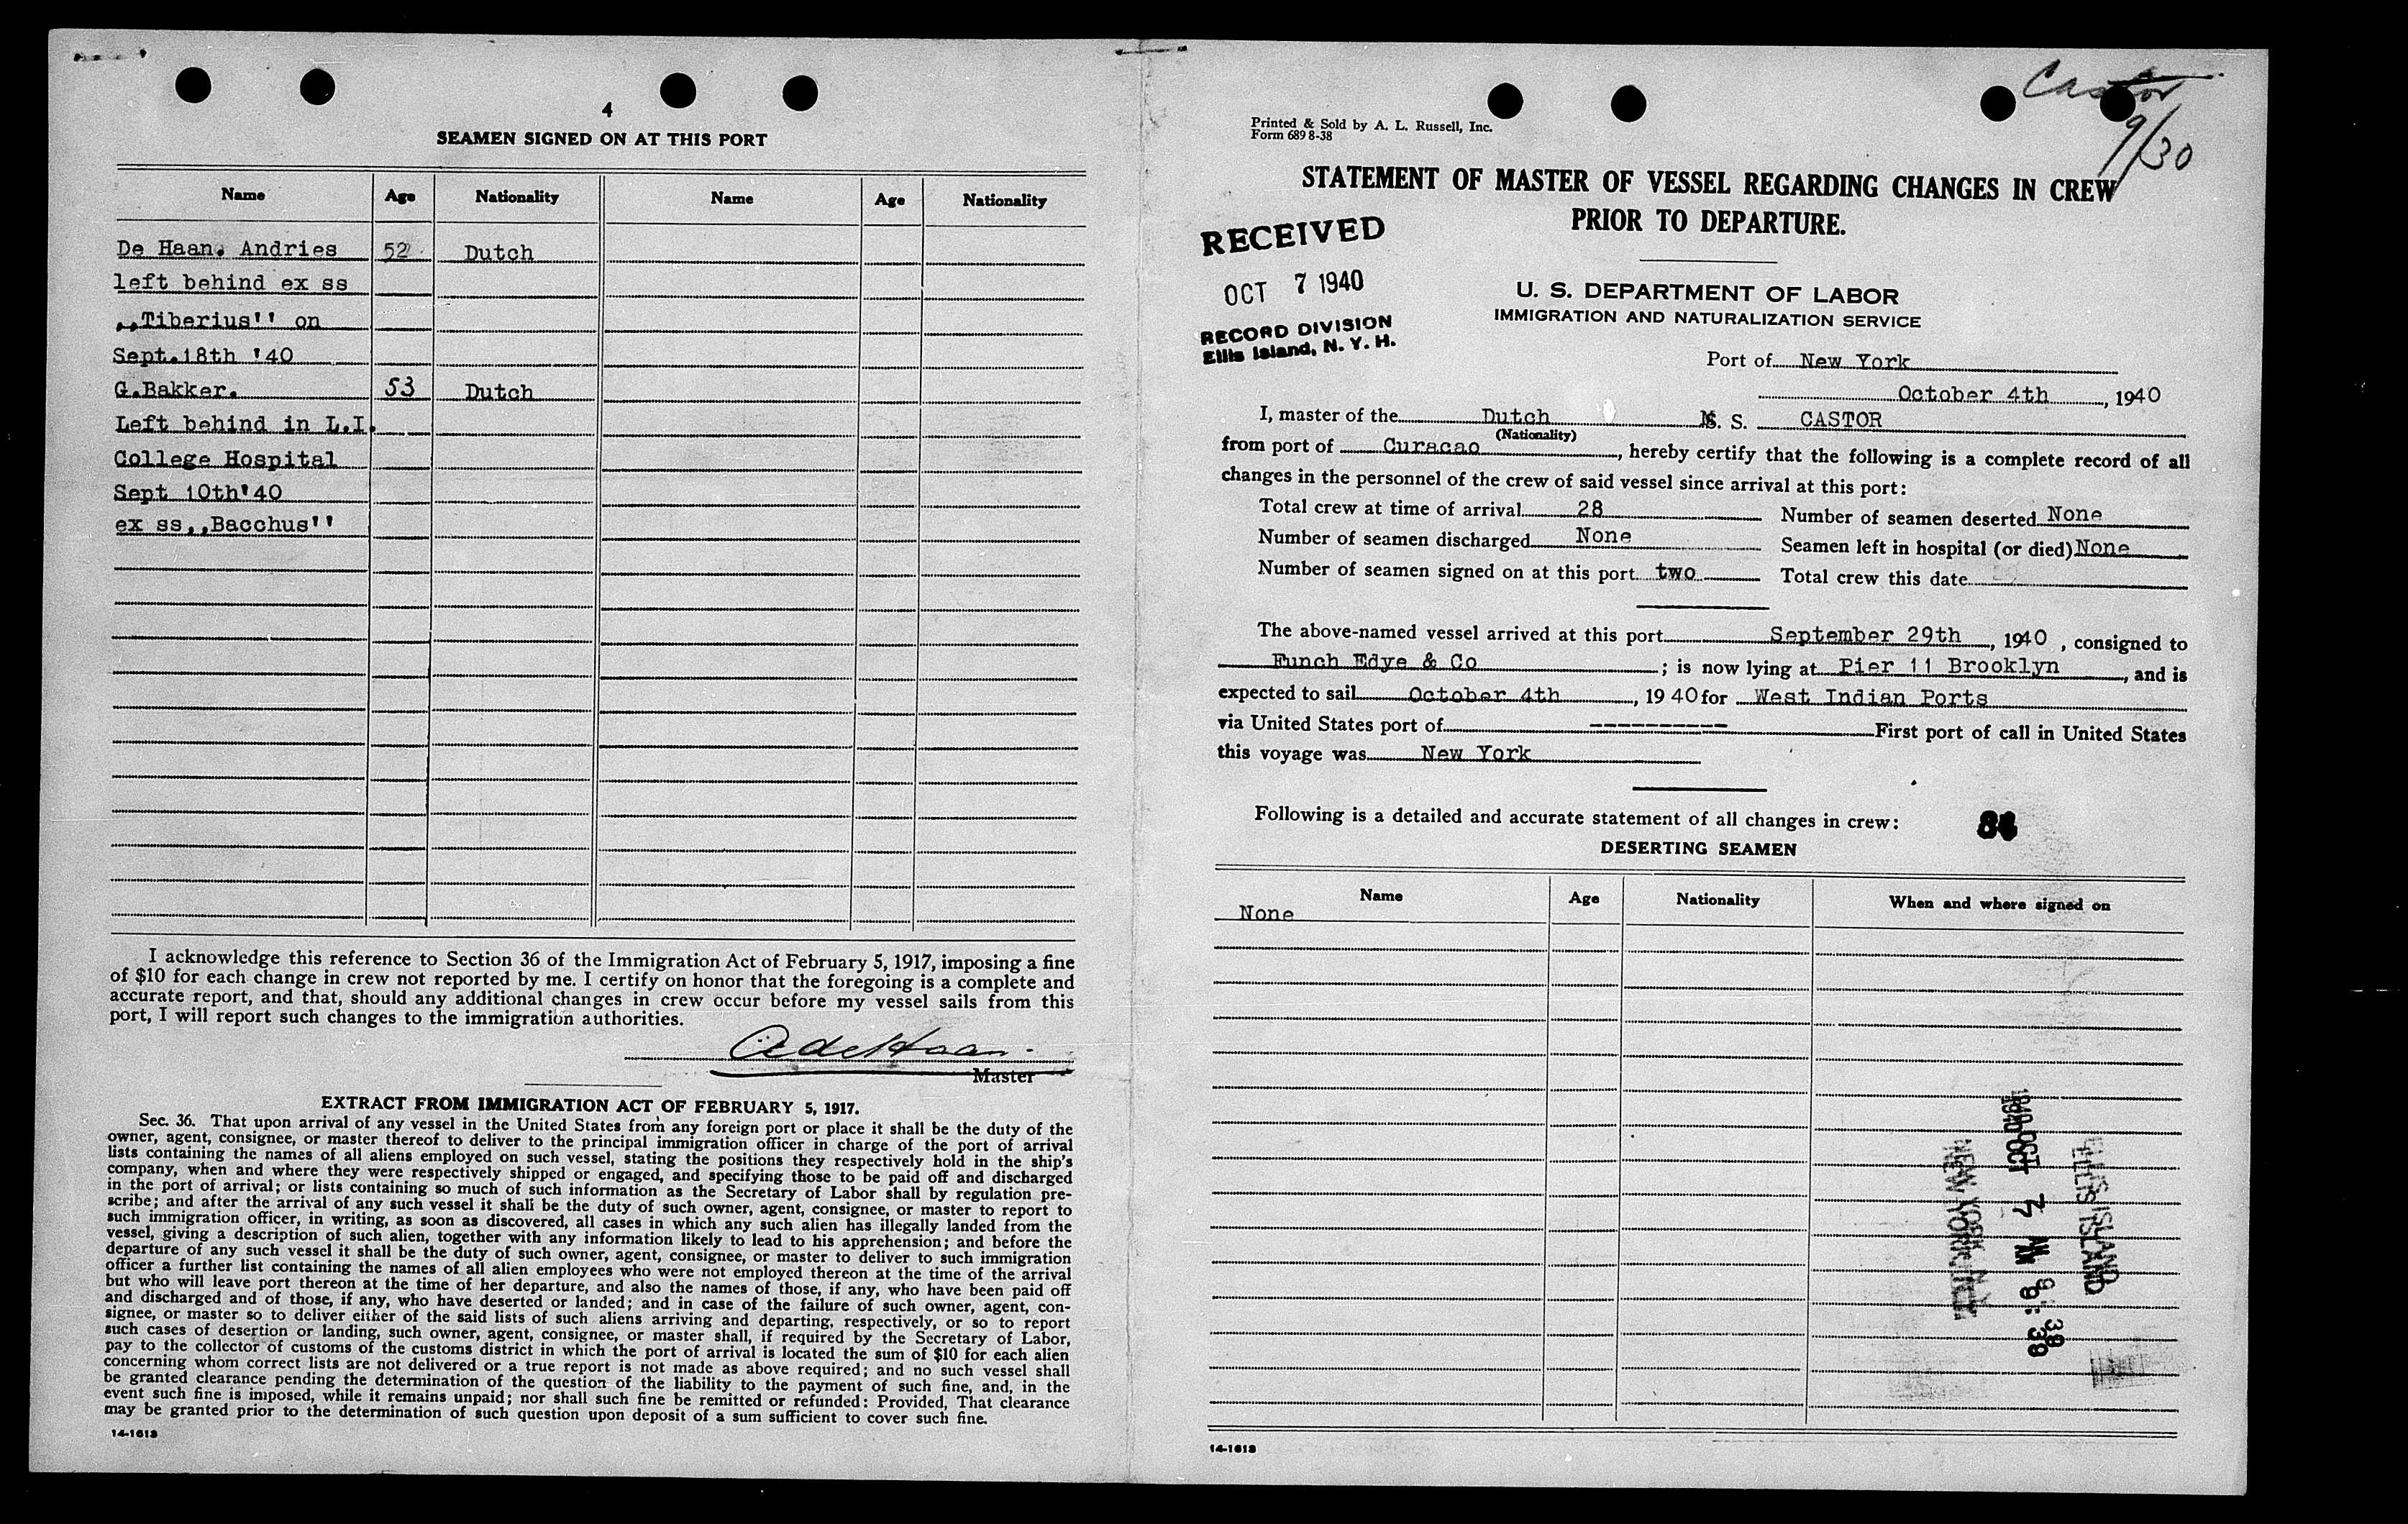 4
SEAMEN SIGNED ON AT THIS PORT
Name Age Nationality Name Age Nationality
De Haan. Andries 52 Dutch
left behind ex ss
,,Tiberius'' on
Sept.18th '40
G.Bakker. 53 Dutch
Left behind in L.I.
College Hospital
Sept 10th'40
ex ss,,Bacchus''
I acknowledge this reference to Section 36 of the Immigration Act of February 5, 1917, imposing a fine
of $10 for each change in crew not reported by me. I certify on honor that the foregoing is a complete and
accurate report, and that, should any additional changes in crew occur before my vessel sails from this
port, I will report such changes to the immigration authorities.
AdeHaan.
Master
EXTRACT FROM IMMIGRATION ACT OF FEBRUARY 5, 1917.
Sec. 36. That upon arrival of any vessel in the United States from any foreign port or place it shall be the duty of the
owner, agent, consignee, or master thereof to deliver to the principal immigration officer in charge of the port of arrival
lists containing the names of all aliens employed on such vessel, stating the positions they respectively hold in the ship's
company, when and where they were respectively shipped or engaged, and specifying those to be paid off and discharged
in the port of arrival; or lists containing so much of such information as the Secretary of Labor shall by regulation pre-
scribe; and after the arrival of any such vessel it shall be the duty of such owner, agent, consignee, or master to report to
such immigration officer, in writing, as soon as discovered, all cases in which any such alien has illegally landed from the
vessel, giving a description of such alien, together with any information likely to lead to his apprehension; and before the
departure of any such vessel it shall be the duty of such owner, agent, consignee, or master to deliver to such immigration
officer a further list containing the names of all alien employees who were not employed thereon at the time of the arrival
but who will leave port thereon at the time of her departure, and also the names of those, if any, who have been paid off
and discharged and of those, if any, who have deserted or landed; and in case of the failure of such owner, agent, con-
signee, or master so to deliver either of the said lists of such aliens arriving and departing, respectively, or so to report
such cases of desertion or landing, such owner, agent, consignee, or master shall, if required by the Secretary of Labor,
pay to the collector of customs of the customs district in which the port of arrival is located the sum of $10 for each alien
concerning whom correct lists are not delivered or a true report is not made as above required; and no such vessel shall
be granted clearance pending the determination of the question of the liability to the payment of such fine, and, in the
event such fine is imposed, while it remains unpaid; nor shall such fine be remitted or refunded: Provided, That clearance
may be granted prior to the determination of such question upon deposit of a sum sufficient to cover such fine.
14-1613
Castor
9/30
Printed & Sold by A. L. Russell, Inc.
Form 689 8-38
STATEMENT OF MASTER OF VESSEL REGARDING CHANGES IN CREW
PRIOR TO DEPARTURE.
RECEIVED
OCT 7 1940
RECORD DIVISION
Ellis Island, N. Y. H.
U. S. DEPARTMENT OF LABOR
IMMIGRATION AND NATURALIZATION SERVICE
Port of New York
October 4th, 1940
I, master of the Dutch M. S. CASTOR
(Nationality)
from port of Curacao, hereby certify that the following is a complete record of all
changes in the personnel of the crew of said vessel since arrival at this port:
Total crew at time of arrival 28 Number of seamen deserted None
Number of seamen discharged None Seamen left in hospital (or died) None
Number of seamen signed on at this port two Total crew this date
The above-named vessel arrived at this port September 29th, 1940, consigned to
Funch Edye & Co; is now lying at Pier 11 Brooklyn, and is
expected to sail October 4th, 1940 for West Indian Ports
via United States port of ------------ First port of call in United States
this voyage was New York
Following is a detailed and accurate statement of all changes in crew:
DESERTING SEAMEN
Name Age Nationality When and where signed on
None
ELLIS ISLAND
1940 OCT 7 AM 9:39
NEW YORK
14-1613